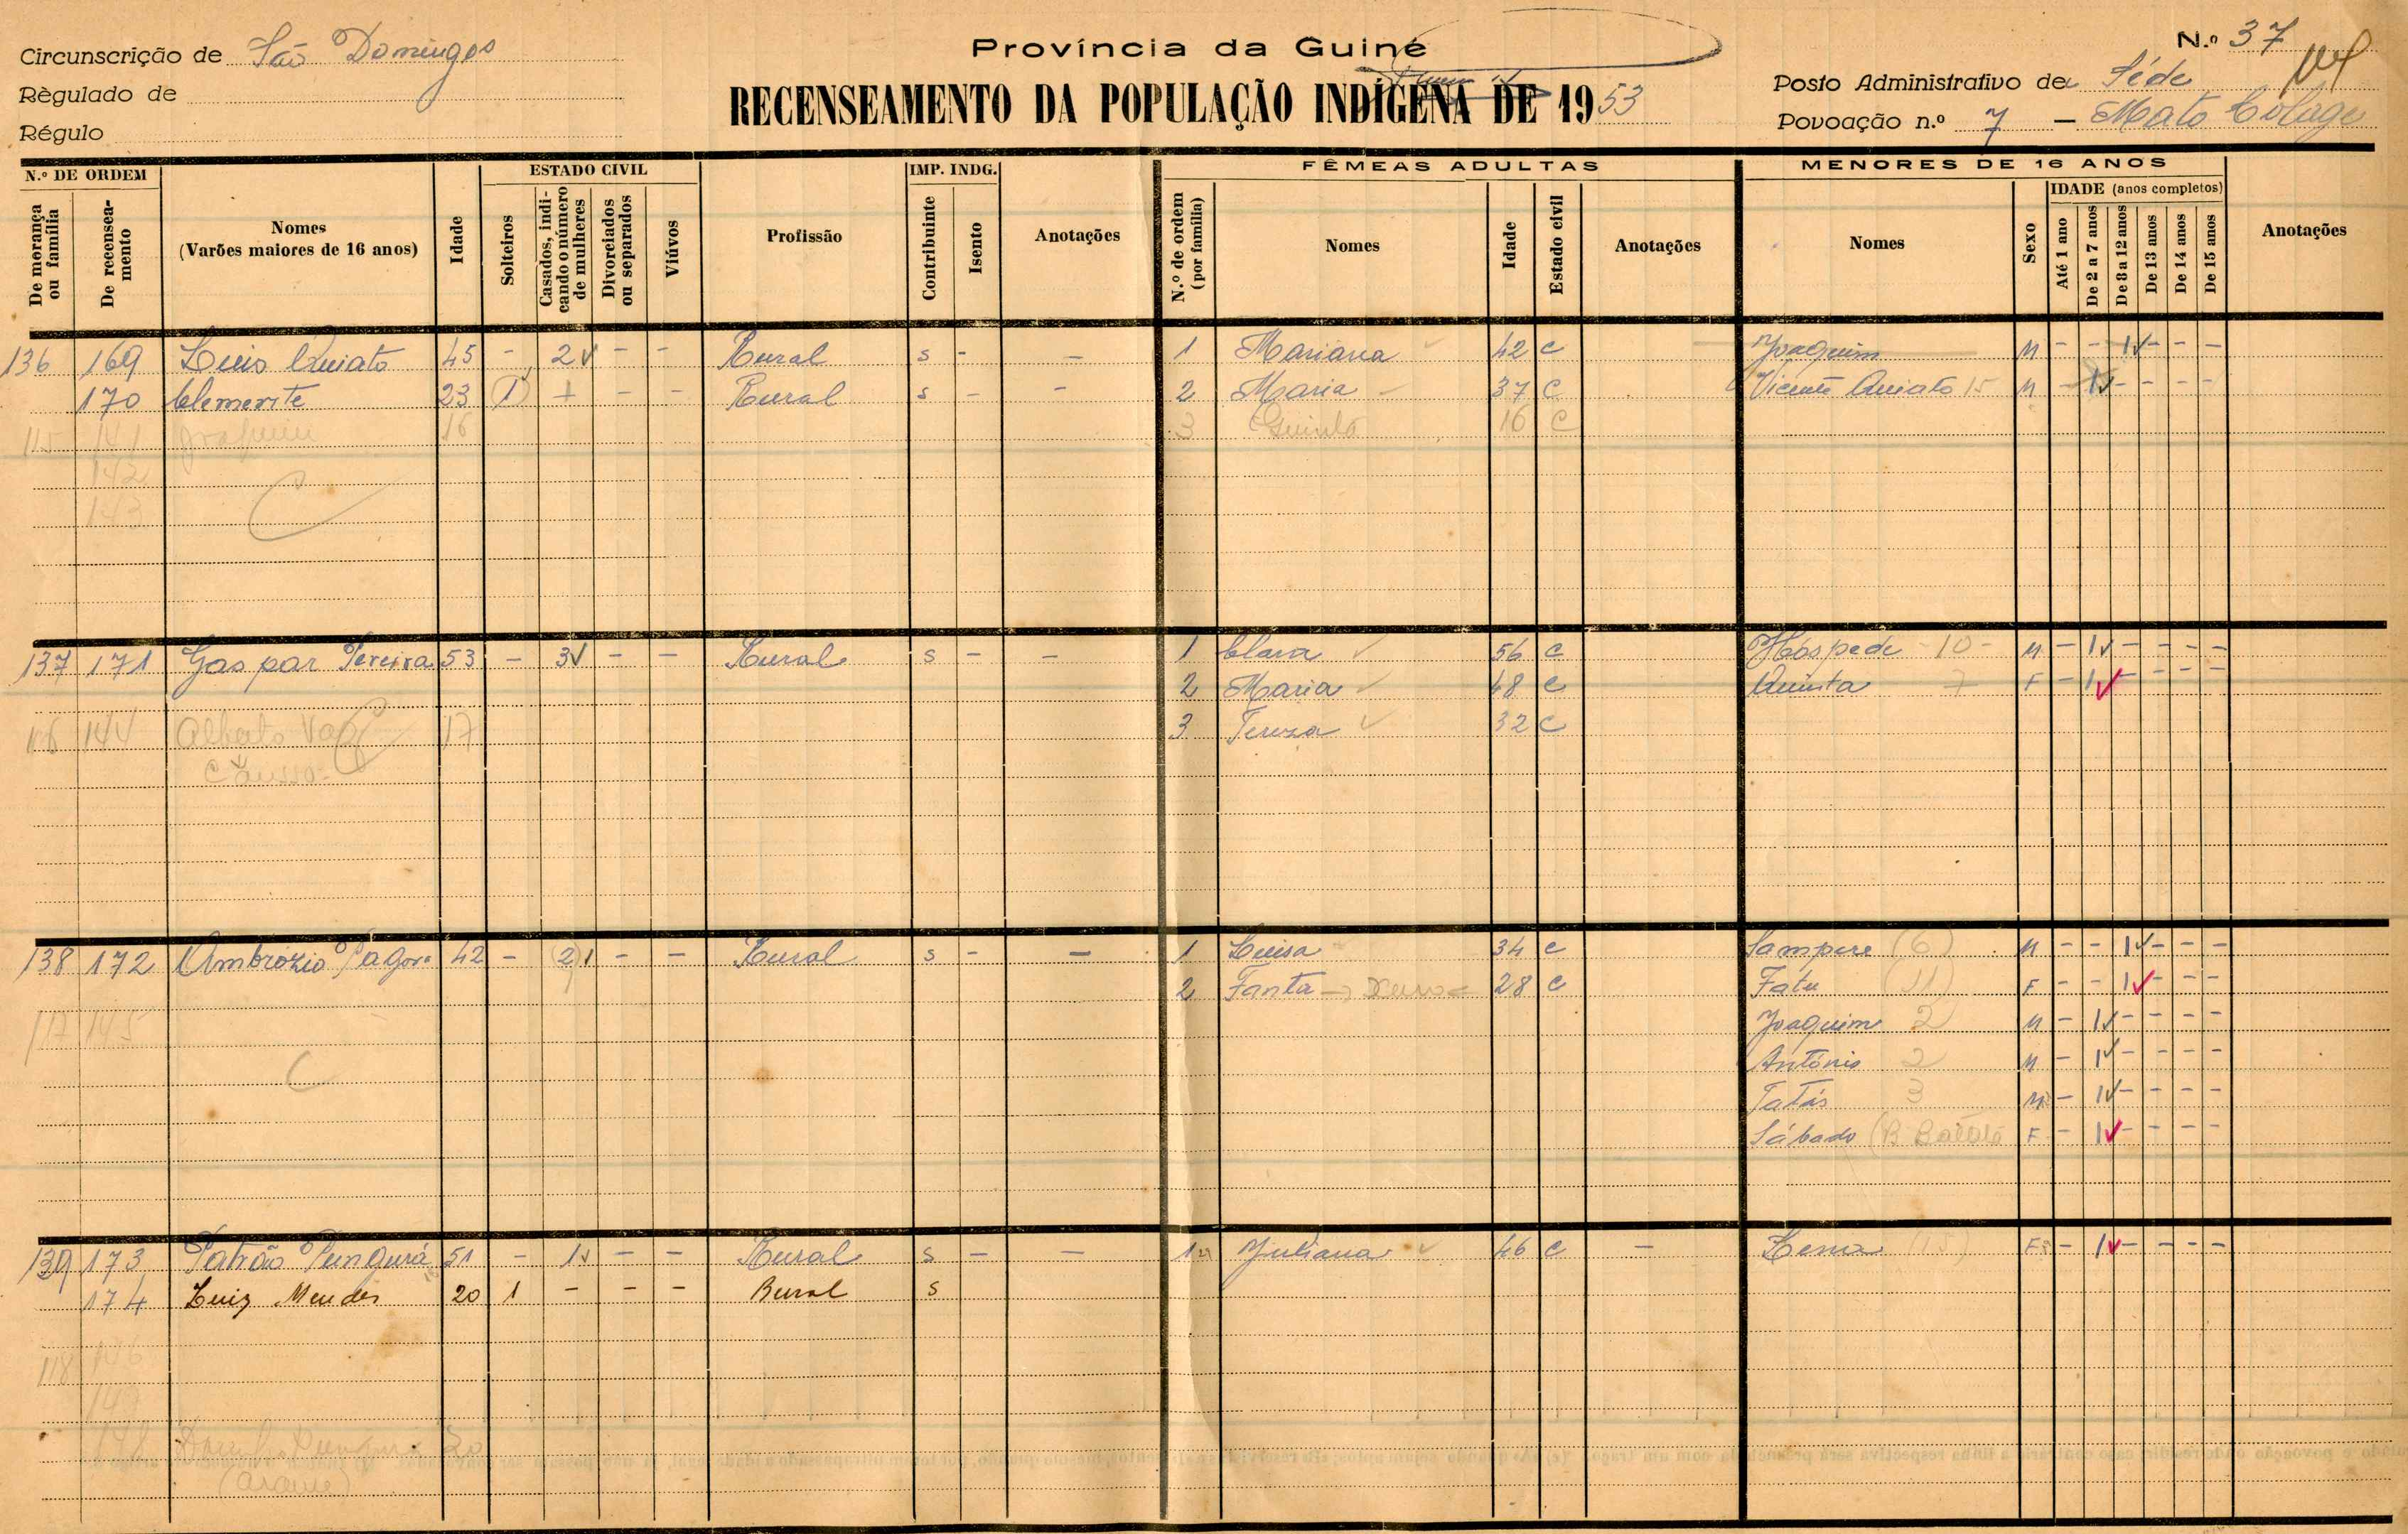 Província da Guiné
N.º 37
Circunscrição de São Domingos
Règulado de
Régulo
RECENSEAMENTO DA POPULAÇÃO INDÍGENA DE 1953
Posto Administrativo de Séde
Povoação n.º 7 — Mato
N.º DE ORDEM
De morança ou família
De recenseamento
Nomes
(Varões maiores de 16 anos)
Idade
ESTADO CIVIL
Solteiros
Casados, indicando o número de mulheres
Divorciados ou separados
Viúvos
Profissão
IMP. INDG.
Contribuinte
Isento
Anotações
FÊMEAS ADULTAS
N.º de ordem (por família)
Nomes
Idade
Estado civil
Anotações
MENORES DE 16 ANOS
Nomes
Sexo
IDADE (anos completos)
Até 1 ano
De 2 a 7 anos
De 8 a 12 anos
De 13 anos
De 14 anos
De 15 anos
Anotações
136 169 Luis Quiato 45 - 2 - - Rural s - - 1 Mariana 42 c Joaquim M - - 1 - - -
170 Clemente 23 1 + - - Rural s - - 2 Maria 37 C Vicente Quiato 15 M - 1 - - - -
115 141 Joaquim 16 3 Quinta 16 C
142
143
137 171 Gaspar Pereira 53 - 3 - - Rural s - - 1 Clara 56 c Hóspede 10 - M - 1 - - - -
2 Maria 48 c Quinta 7 F - 1 - - - -
116 144 Alberto Vaz 17 3 Tereza 32 C
138 172 Ambrozio 42 - 2 1 - - Rural s - - 1 Luisa 34 c Sampere (6) M - - 1 - - -
2 Fanta 28 c Fatu (11) F - - 1 - - -
117 145 Joaquim 2 M - 1 - - - -
António 2 M - 1 - - - -
Tatás 3 M - 1 - - - -
Sábado F - 1 - - - -
139 173 Patrão Pungurá 51 - 1 - - Rural s - - 1 Juliana 46 c - F - 1 - - - -
174 Luiz Mendes 20 1 - - - Rural s
118 146
20